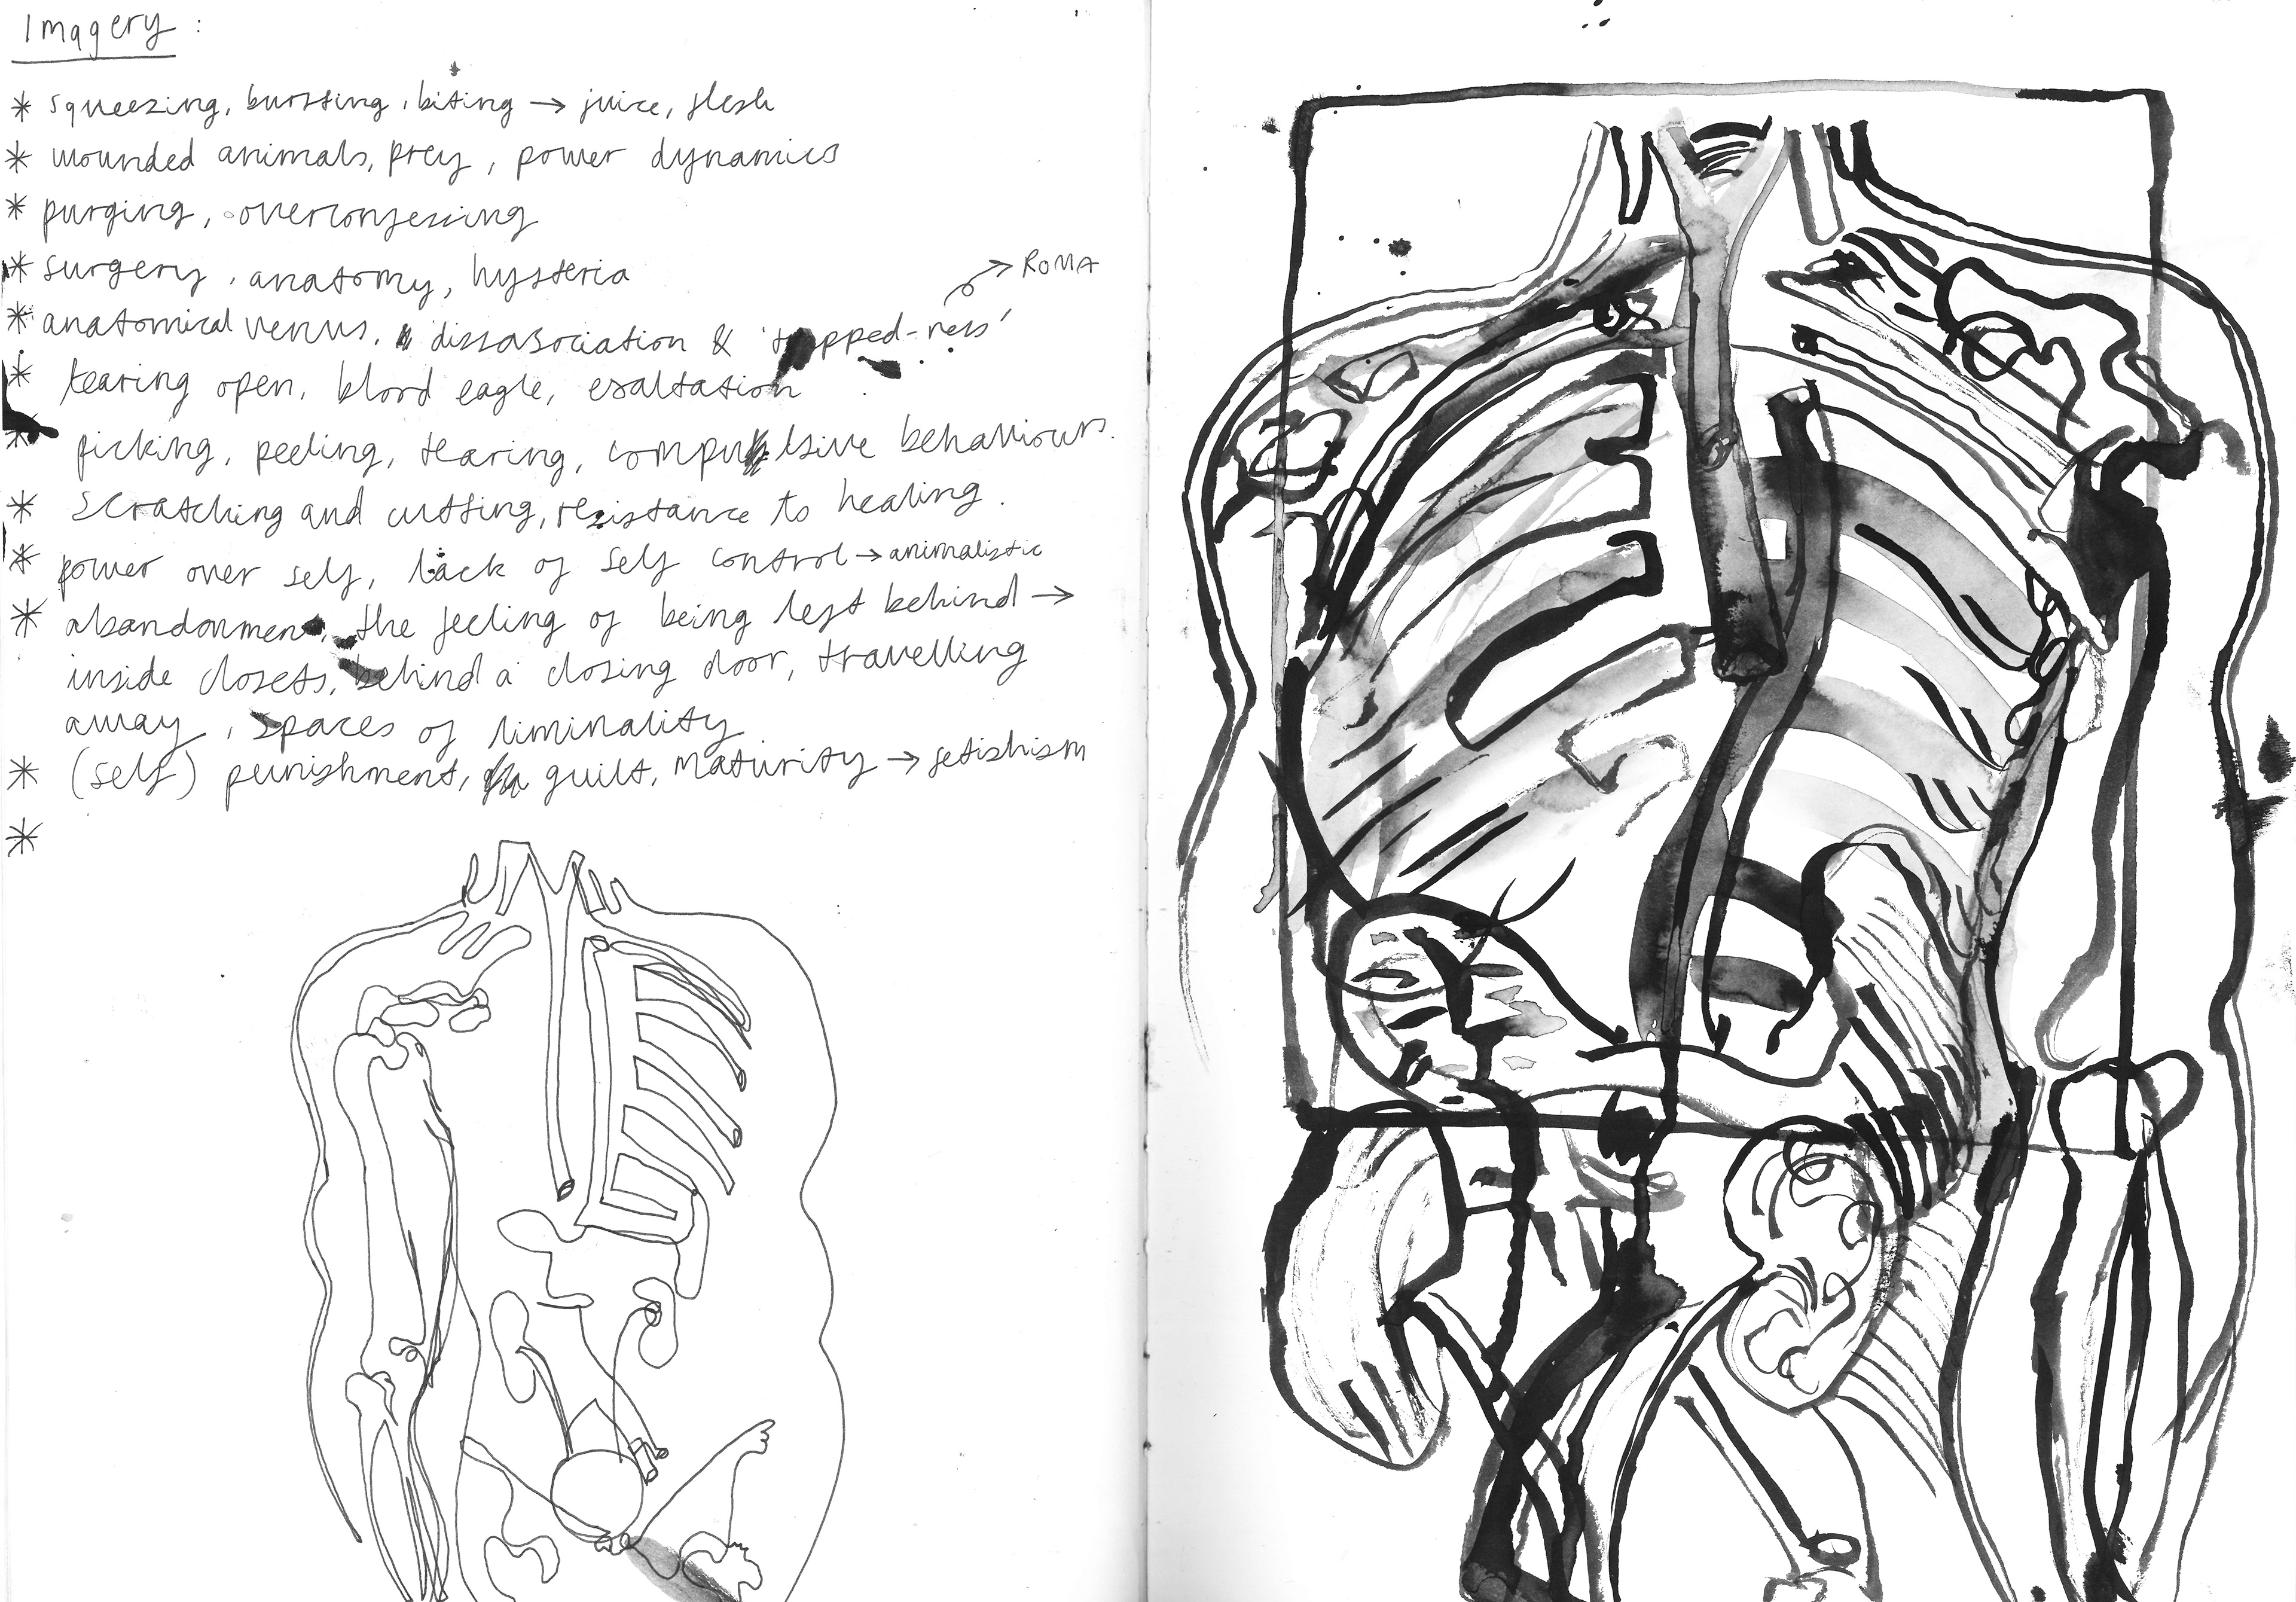 Imagery :
* squeezing, bursting, biting → juice, flesh
* wounded animals, prey, power dynamics
* purging, overconfessing
* surgery, anatomy, hysteria
→ ROMA
* anatomical venus, dissasociation & 'trapped-ness'
* tearing open, blood eagle, exaltation
* picking, peeling, tearing, compulsive behaviours.
* scratching and cutting, resistance to healing.
* power over self, lack of self control → animalistic
* abandonment, the feeling of being left behind →
inside closets, behind a closing door, travelling
away, spaces of liminality
* (self) punishment, guilt, maturity → fetishism
*